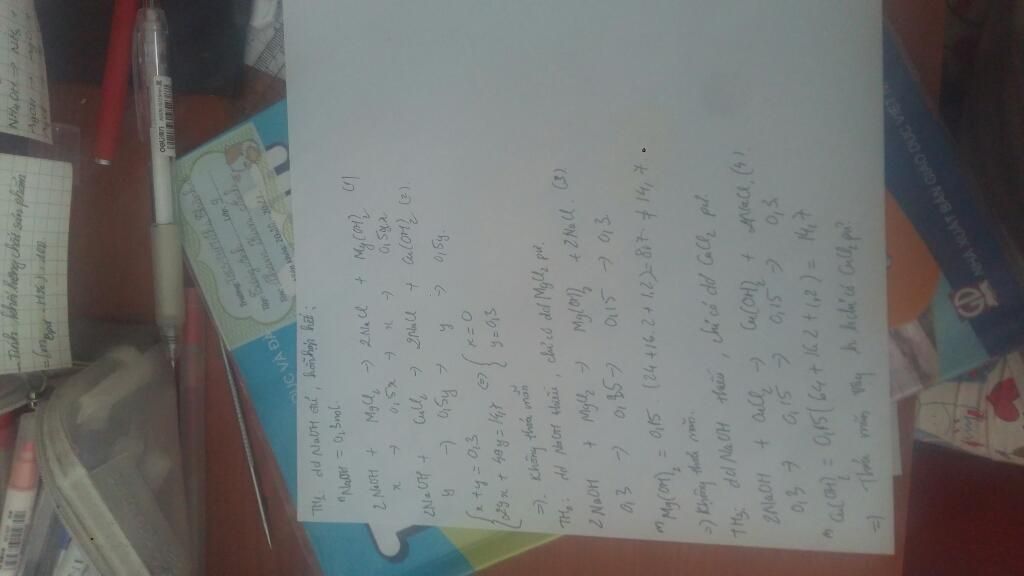 TH1: dd NaOH đủ, hỗn hợp hết:
nNaOH = 0,3 mol.
2NaOH + MgCl2 → 2NaCl + Mg(OH)2 (1)
x → 0,5x → x → 0,5x
2NaOH + CuCl2 → 2NaCl + Cu(OH)2 (2).
y → 0,5y → y → 0,5y.
{ x + y = 0,3
29x + 49y = 14,7 ⇔ { x = 0
y = 0,3
=) Không thỏa mãn
TH2: dd NaOH thiếu, chỉ có dd MgCl2 pứ.
2NaOH + MgCl2 → Mg(OH)2 + 2NaCl. (3)
0,3 → 0,15 → 0,15 → 0,3.
mMg(OH)2 = 0,15. (24 + 16.2 + 1.2) = 8,7 ≠ 14,7.
=) Không thỏa mãn.
TH3: dd NaOH thiếu, chỉ có dd CuCl2 pứ.
2NaOH + CuCl2 → Cu(OH)2 + 2NaCl. (4)
0,3 → 0,15 → 0,15 → 0,3.
mCu(OH)2 = 0,15(64 + 16.2 + 1.2) = 14,7
=) Thỏa mãn vậy chỉ có CuCl2 pứ?
NHÀ XUẤT BẢN GIÁO DỤC VIỆT
- Tính khối lượng chất sản phẩm
deli